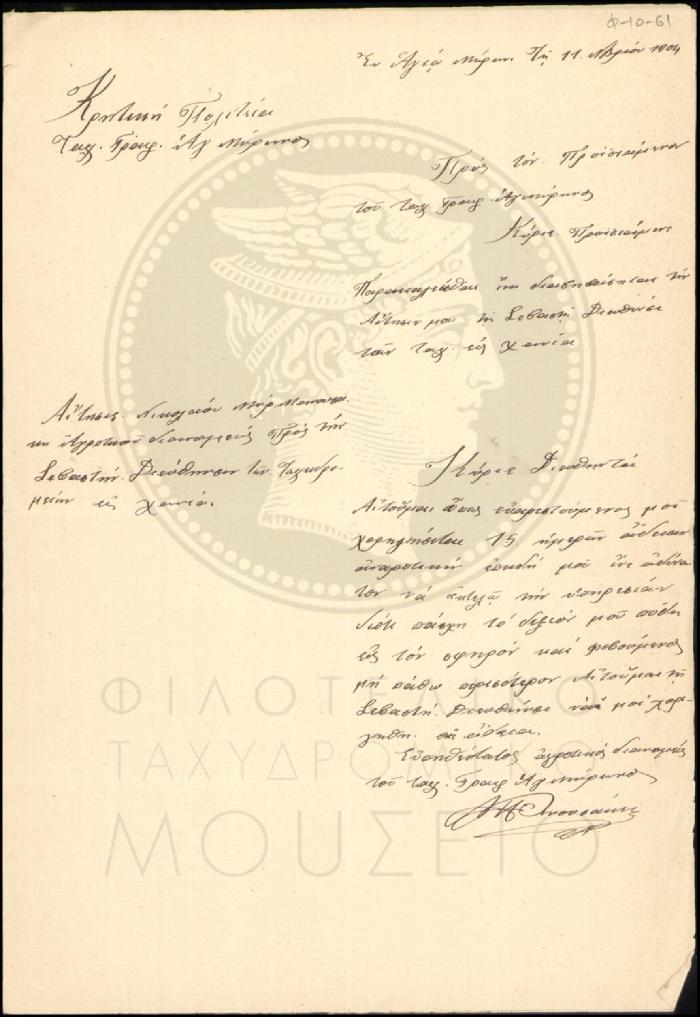 Φ-10-61
Ἐν Ἁγίῳ Μύρωνι τῇ 11 Μαρίου 1904
Κρητική Πολιτεία
Ταχ. Γραφ. Ἁγ Μύρωνος
Πρός τόν Προϊστάμενον
τοῦ ταχ Γραφ. Ἁγ. Μύρωνος
Κύριε Προϊστάμενε
Παρακαλεῖσθαι διαβιβάσητε τήν
Αἴτησιν μου τῇ Σεβαστῇ Διευθύνσει
τῶν ταχ. εἰς Χανία
Αἴτησις Νικολάου Μύρ
Ἀγροτικοῦ διανομέως Πρός τήν
Σεβαστήν Διεύθησιν τῶν Ταχυδρο-
μείων εἰς Χανία.
Κύριε Διευθητά
Αἰτοῦμαι ὅπως εὐαρεστούμενος μοί
χορηγήσεται 15 ἡμερῶν ἄδειαν
ἀναρρωτικήν ἐπειδή μοῦ ἶνε ἀδύνα
τον νά ἐκτελῶ τήν ὑπηρεσίαν
διότι πάσχη τό δεξιόν μοῦ πόδι
εἰς τόν σφηρόν καί φοβούμενος
μή πάθω περισσότερον Αἰτοῦμαι τῇ
Σεβαστῇ Διευθήνσει νά μοί χορι-
γηθῆ ἄδεια.
Εὐπηθέστατος ἀγροτικός διανομεύς
τοῦ ταχ. Γραφ Ἁγ Μύρωνος
ΦΙΛΟΤΕΛΙΚΟ
ΤΑΧΥΔΡΟΜΙΚΟ
ΜΟΥΣΕΙΟ